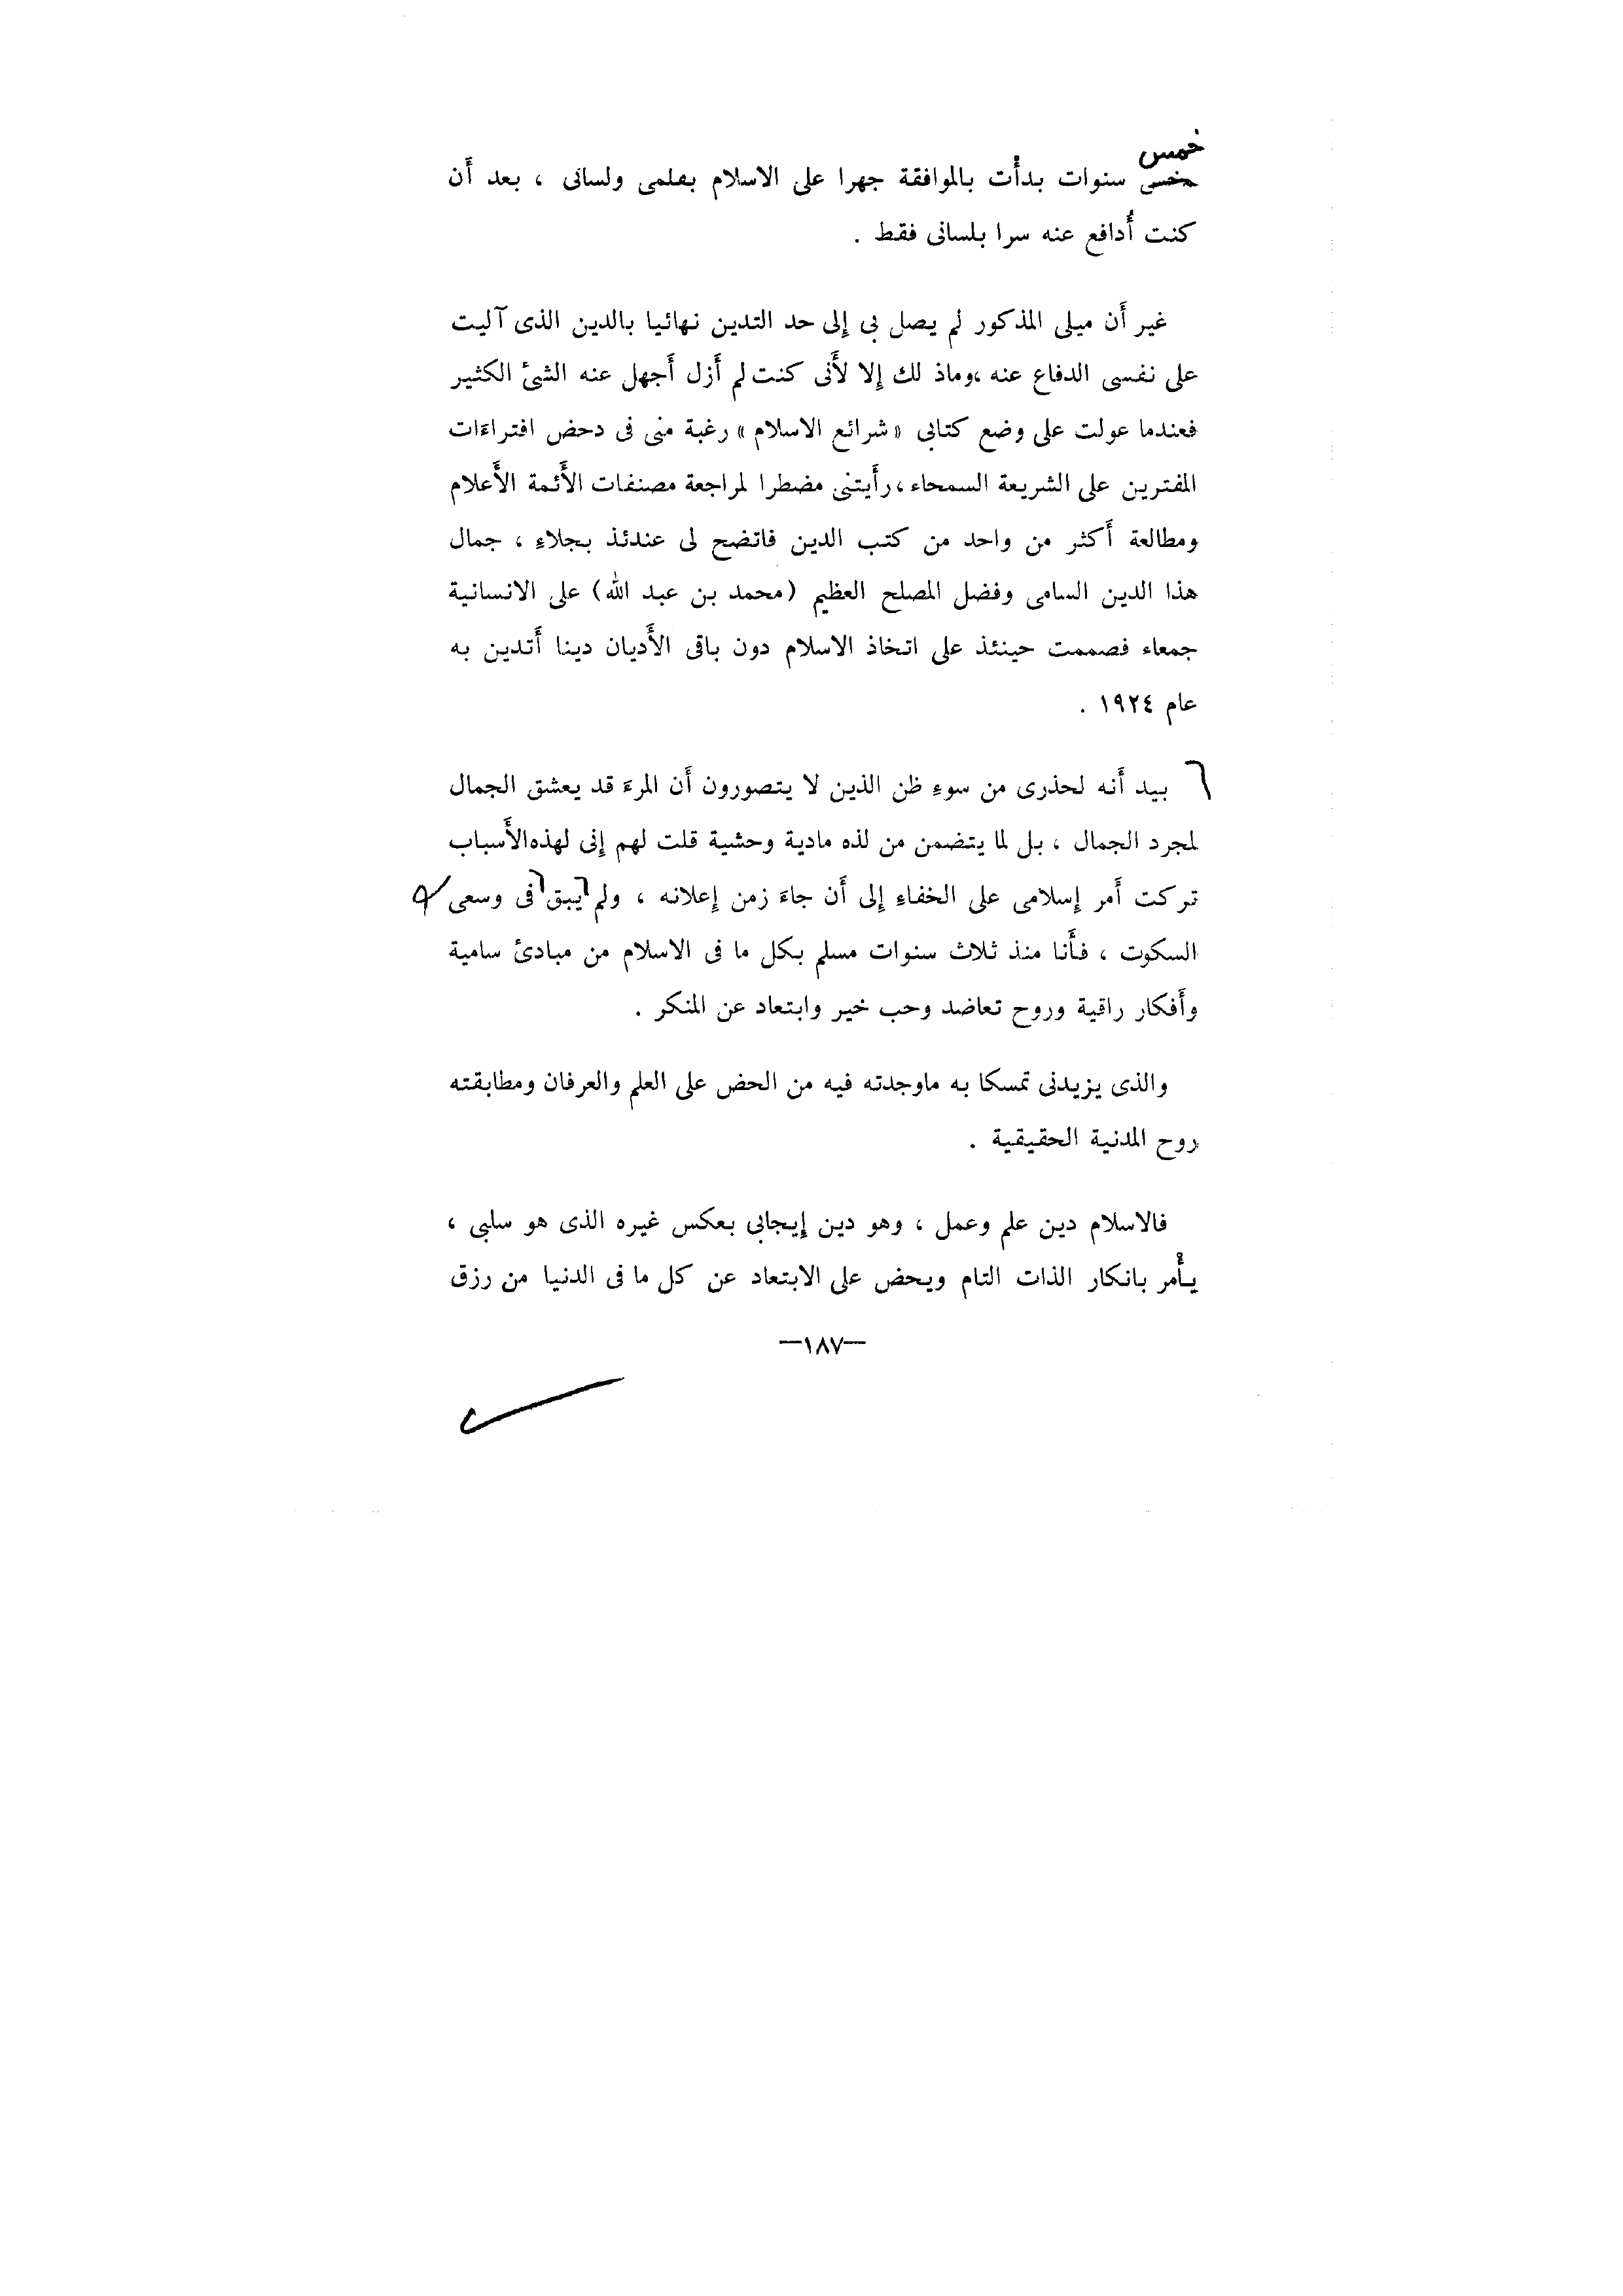 خمس
خمسى سنوات بدأت بالموافقة جهرا على الاسلام بقلمى ولسانى ، بعد أن
كنت أدافع عنه سرا بلسانى فقط .
غير أن ميلى المذكور لم يصل بى إلى حد التدين نهائيا بالدين الذى آليت
على نفسى الدفاع عنه ،وماذ لك إلا لأنى كنت لم أزل أجهل عنه الشئ الكثير
فعندما عولت على وضع كتابى « شرائع الاسلام » رغبة منى فى دحض افتراءات
المفترين على الشريعة السمحاء ،رأيتنى مضطرا لمراجعة مصنفات الأئمة الأعلام
ومطالعة أكثر من واحد من كتب الدين فاتضح لى عندئذ بجلاء ، جمال
هذا الدين السامى وفضل المصلح العظيم (محمد بن عبد الله) على الانسانية
جمعاء فصممت حينئذ على اتخاذ الاسلام دون باقى الأديان دينا أتدين به
عام ١٩٢٤ .
بيد أنه لحذرى من سوء ظن الذين لا يتصورون أن المرءَ قد يعشق الجمال
لمجرد الجمال ، بل لما يتضمن من لذه مادية وحشية قلت لهم إنى لهذه الأسباب
تركت أمر إسلامى على الخفاءِ إلى أن جاءَ زمن إعلانه ، ولم يبق فى وسعى
السكوت ، فأنا منذ ثلاث سنوات مسلم بكل ما فى الاسلام من مبادئ سامية
وأفكار راقية وروح تعاضد وحب خير وابتعاد عن المنكر .
والذى يزيدنى تمسكا به ماوجدته فيه من الحض على العلم والعرفان ومطابقته
روح المدنية الحقيقية .
فالاسلام دين علم وعمل ، وهو دين إيجابى بعكس غيره الذى هو سلبى ،
يأمر بانكار الذات التام ويحض على الابتعاد عن كل ما فى الدنيا من رزق
—١٨٧—